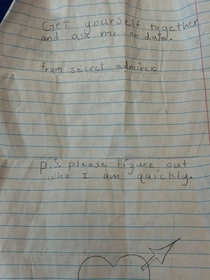 Get yourself together
and ask me on date.
from secret admirer
p.s. please figure out
who I am quickly.